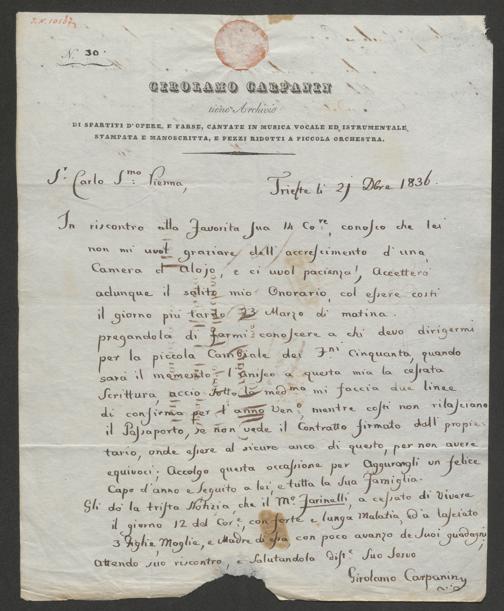 N. 30.
GIROLAMO CARPANIN
tiene Archivio
DI SPARTITI D'OPERE, E FARSE, CANTATE IN MUSICA VOCALE ED ISTRUMENTALE,
STAMPATA E MANOSCRITTA, E PEZZI RIDOTTI A PICCOLA ORCHESTRA.
Sr. Carlo Smo Vienna,
Trieste li 21 Dbre 1836.
In riscontro alla Favorita Sua 14 Corre, conosco che lei
non mi vuol graziare dell' accrescimento d' una
Camera d' Alojo, e ci vuol pacienza, Accetterò
adunque il solito mio Onorario, col essere costi
il giorno più tardo 23 Marzo di matina.
pregandola di farmi conoscere a chi devo dirigermi
per la piccola Cambiale dei fni Cinquanta, quando
sarà il momento. l' anisco a questa mia la cessata
Scrittura, accio sotto la medma mi faccia due linee
di conferma per l' anno Veno, mentre costi non rilasciano
il Passaporto, se non vede il Contratto firmato dall' proprie-
tario, onde essere al sicuro anco di questo, per non avere
equivoci; Accolgo questa occassione per Aggurargli un felice
Capo d' anno e seguito a lei, e tutta la Sua Famiglia.
Gli do la trista Notizia, che il Mo Farinelli, a cessato di Vivere
il giorno 12 dal Core, con forte e lunga Malatia, ed a lasciato
3 Figlie, Moglie, e Madre di essa con poco avanzo de Suoi guadagni,
Attendo suo riscontro, e Salutandola diste Suo Servo
Girolamo Carpanin